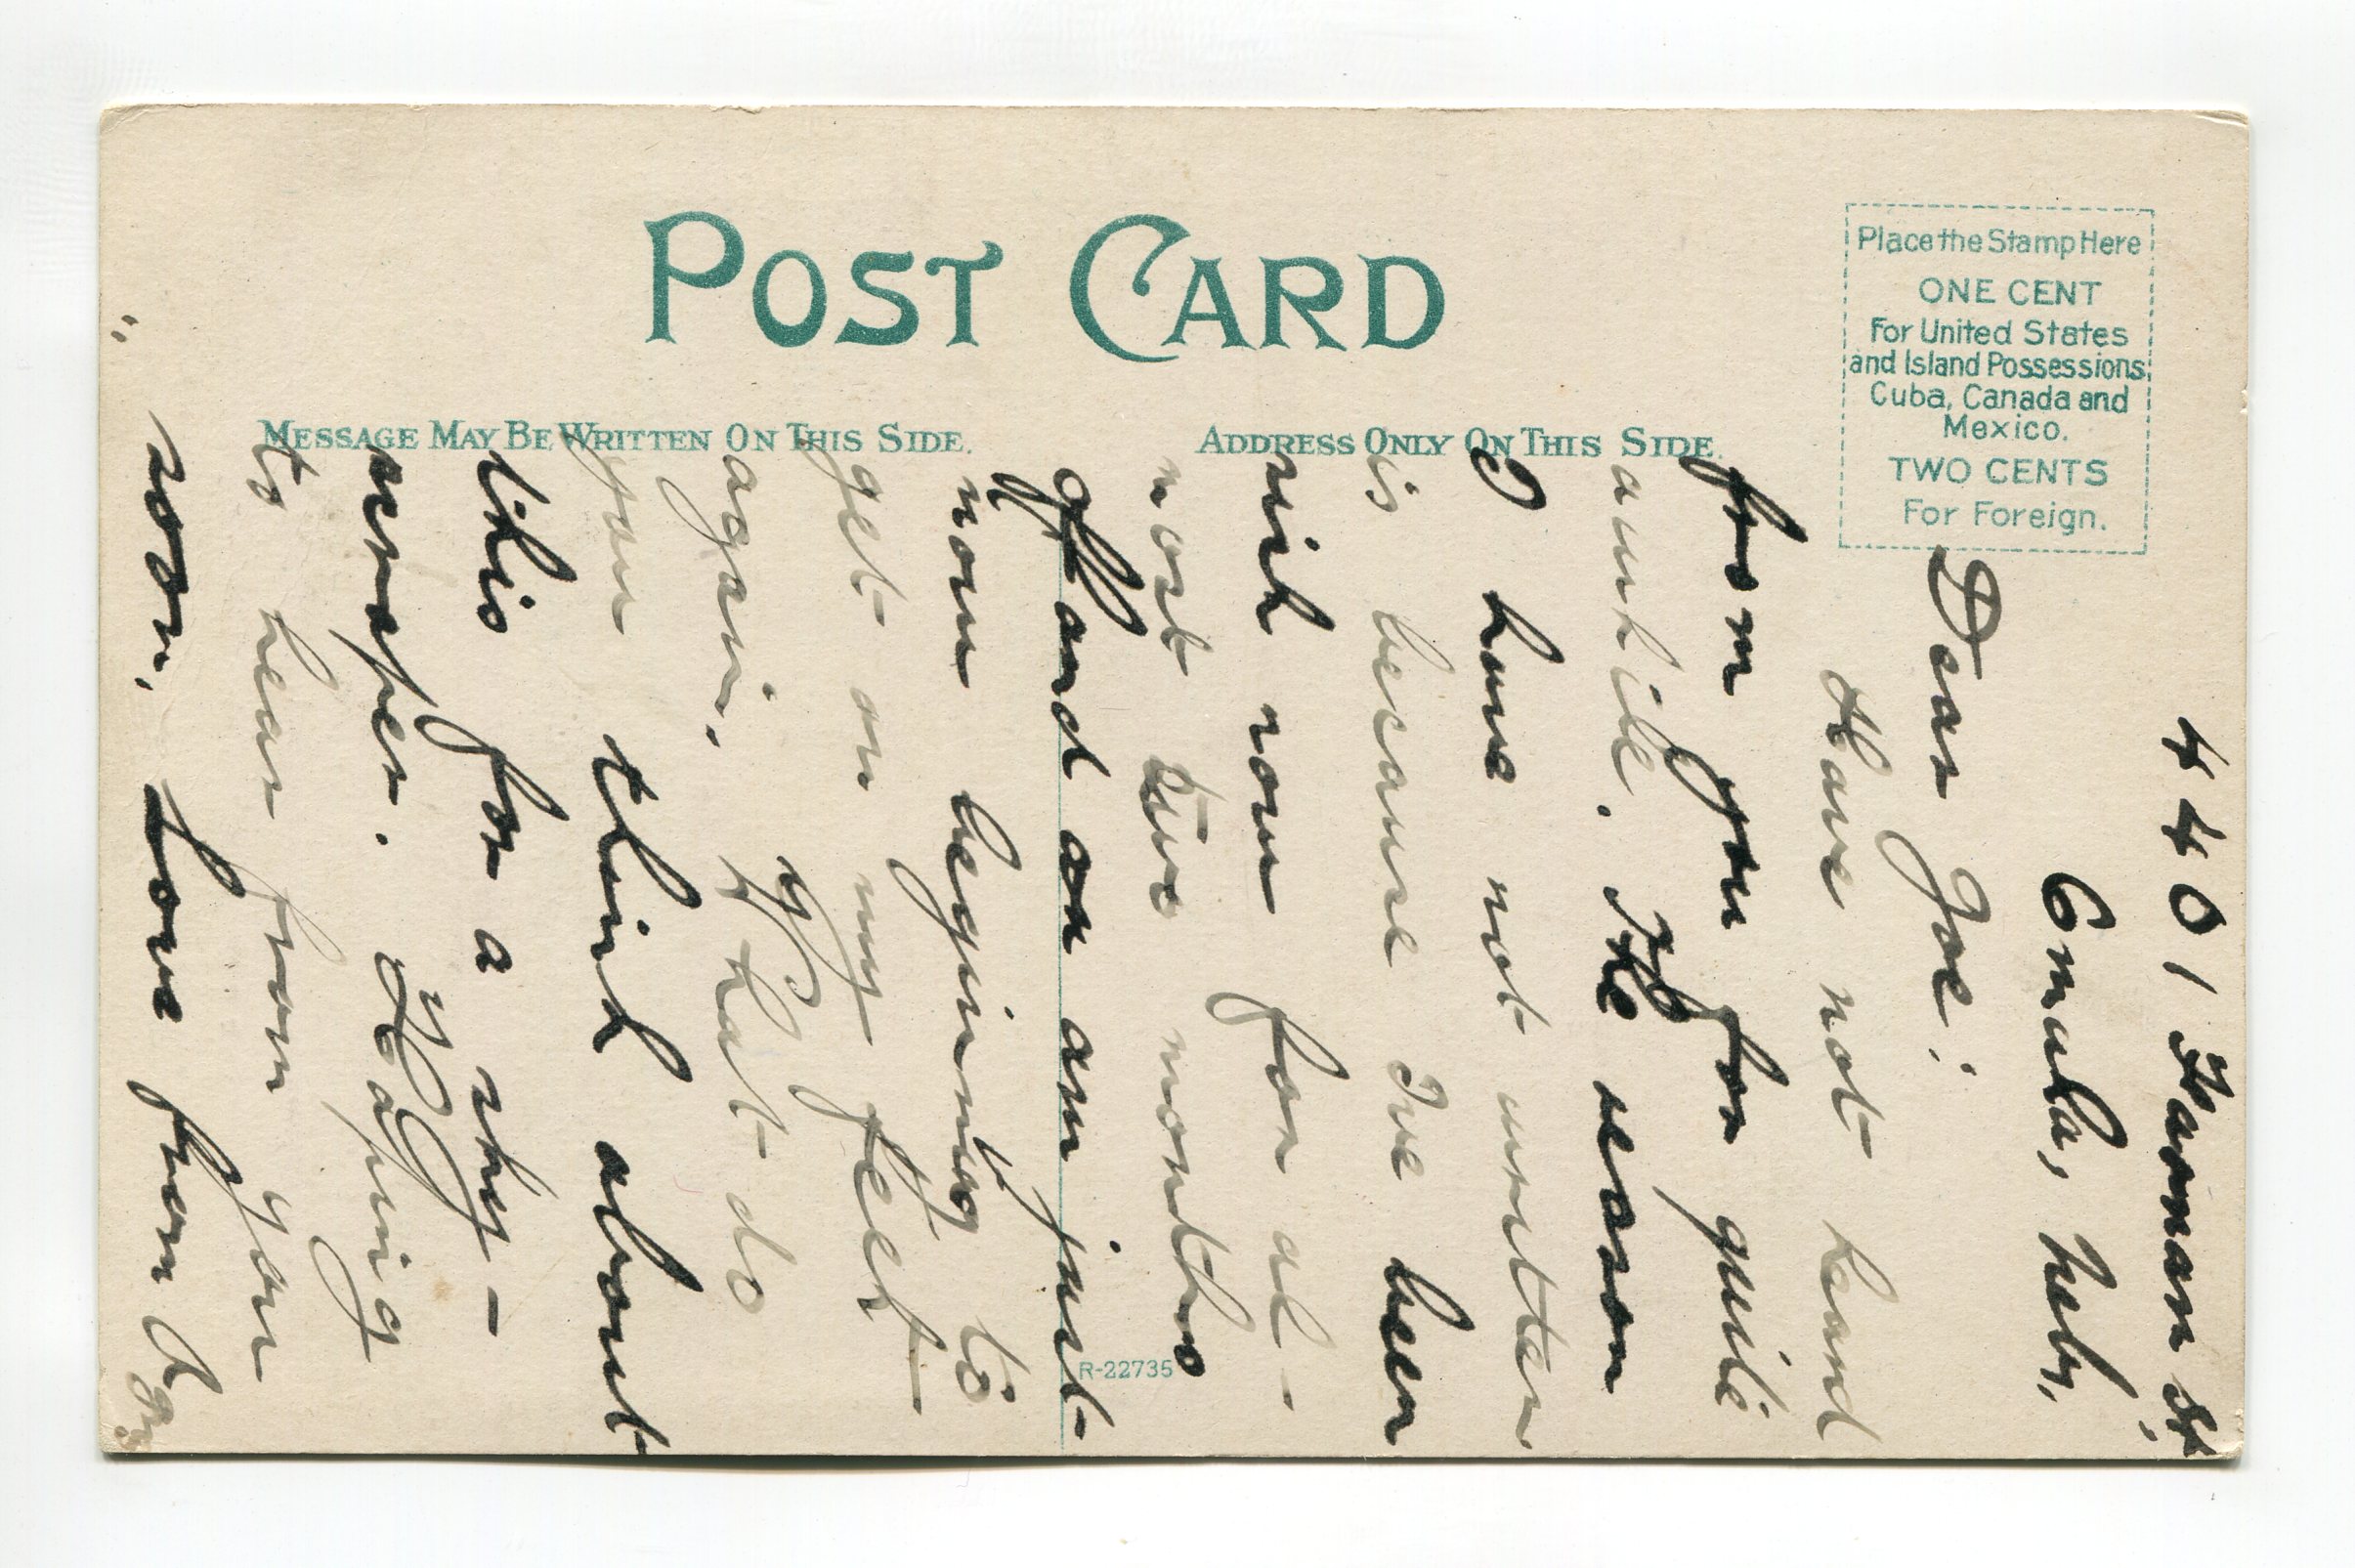 POST CARD
MESSAGE MAY BE WRITTEN ON THIS SIDE.
ADDRESS ONLY ON THIS SIDE.
Place the Stamp Here
ONE CENT
For United States
and Island Possessions,
Cuba, Canada and
Mexico.
TWO CENTS
For Foreign.
R-22735
4401 Farman St,
Omaha, Nebr.
Dear Joe:
Have not heard
from you for quite
awhile. The reason
I have not written
is because I've been
sick now for al-
most two months
off and on am just
now begining to
get on my feet
again. What do
you think about
this for a sky-
scraper. Hoping
to hear from you
soon, Love from